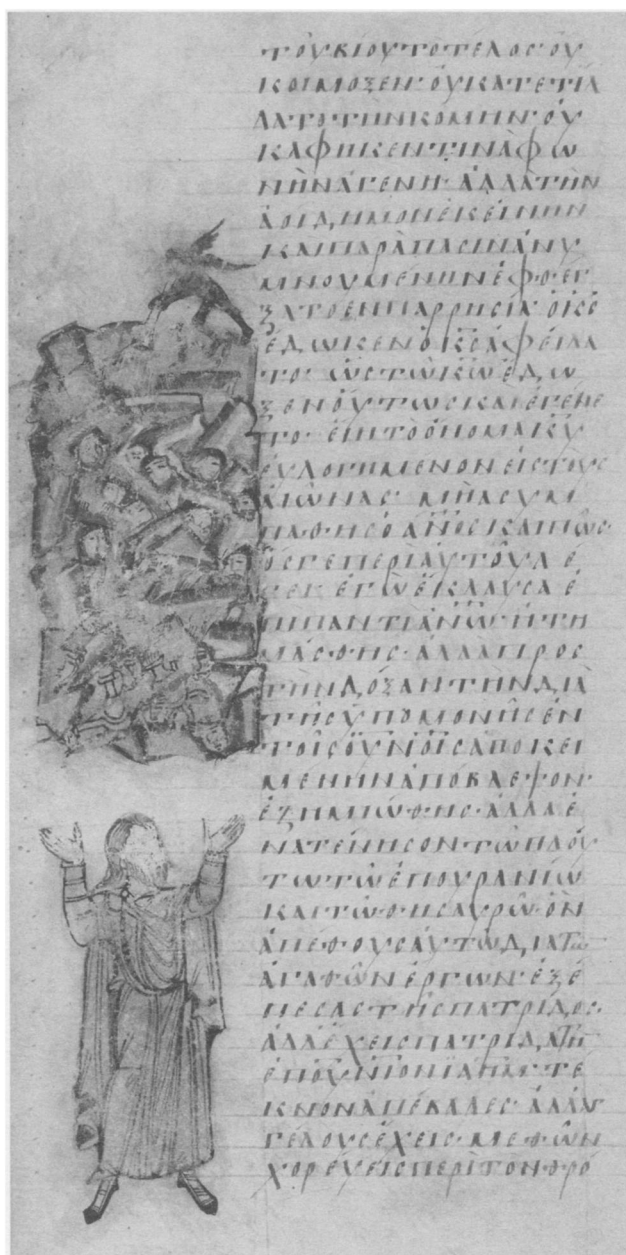 ΤΟΥ ΒΙΟΥ ΤΟ ΤΕΛΟΣ· ΟΥ
Κ ΟΙΜΟΞΕΝ· ΟΥ ΚΑΤΕΤΙΛ
ΛΑΤΟ ΤΗΝ ΚΟΜΗΝ· ΟΥ
Κ ΑΦΗΚΕΝ ΤΙΝΑ ΦΩ
ΝΗΝ ΑΓΕΝΗ· ΑΛΛΑ ΤΗΝ
ΑΟΙΔΗΜΟΝ ΕΚΕΙΝΗΝ
ΚΑΙ ΠΑΡΑ ΠΑΣΙΝ ΑΝΥ
ΜΝΟΥΜΕΝΗΝ ΕΦΘΕΓ
ΞΑΤΟ ΕΝ ΠΑΡΡΗΣΙΑ· Ο ΚΣ
ΕΔΩΚΕΝ Ο ΚΣ ΑΦΕΙΛΑ
ΤΟ· ΩΣ ΤΩ ΚΩ ΕΔΩ
ΞΕΝ ΟΥΤΩΣ ΚΑΙ ΕΓΕΝΕ
ΤΟ· ΕΙΗ ΤΟ ΟΝΟΜΑ ΚΥ
ΕΥΛΟΓΗΜΕΝΟΝ ΕΙΣ ΤΟΥΣ
ΑΙΩΝΑΣ· ΜΗ ΑΣΥΜ
ΠΑΘΗΣ Ο ΑΝΟΣ ΚΑΙ ΠΩΣ·
ΟΣ ΓΕ ΠΕΡΙ ΑΥΤΟΥ ΛΕ
ΓΕΙ· ΕΓΩ ΕΚΛΑΥΣΑ Ε
ΠΙ ΠΑΝΤΙ ΑΝΩ· ΗΤΗ
ΜΑΣΘΗΣ· ΑΛΛΑ ΠΡΟΣ
ΤΗΝ ΔΟΞΑΝ ΤΗΝ ΔΙΑ
ΤΗΣ ΥΠΟΜΟΝΗΣ ΕΝ
ΤΟΙΣ ΟΥΝΟΙΣ ΑΠΟΚΕΙ
ΜΕΝΗΝ ΑΠΟΒΛΕΨΟΝ·
ΕΖΗΜΙΩΘΗΣ· ΑΛΛΑ Ε
ΝΑΤΕΝΗΣΟΝ ΤΩ ΠΛΟΥ
ΤΩ ΤΩ ΕΠΟΥΡΑΝΙΩ
ΚΑΙ ΤΩ ΘΗΣΑΥΡΩ ΟΝ
ΑΠΕΘΟΥ ΣΑΥΤΩ ΔΙΑ ΤΩΝ
ΑΓΑΘΩΝ ΕΡΓΩΝ· ΕΞΕ
ΠΕΣΑΣ ΤΗΣ ΠΑΤΡΙΔΟΣ·
ΑΛΛ ΕΧΕΙΣ ΠΑΤΡΙΔΑ ΤΗΝ
ΕΠΟΥΝΙΟΝ ΤΕ
ΚΝΟΝ ΑΠΕΒΑΛΕΣ· ΑΛΛ ΑΓ
ΓΕΛΟΥΣ ΕΧΕΙΣ· ΜΕΘ ΩΝ
ΧΟΡΕΥΕΙΣ ΠΕΡΙ ΤΟΝ ΘΡΟ